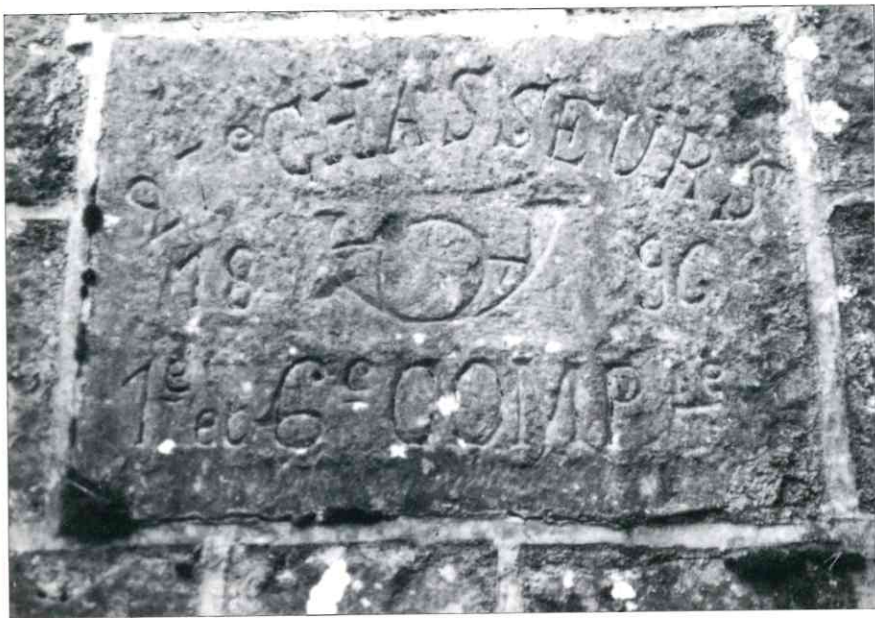 CHASSEURS
18 96
1e et 6e COMPie